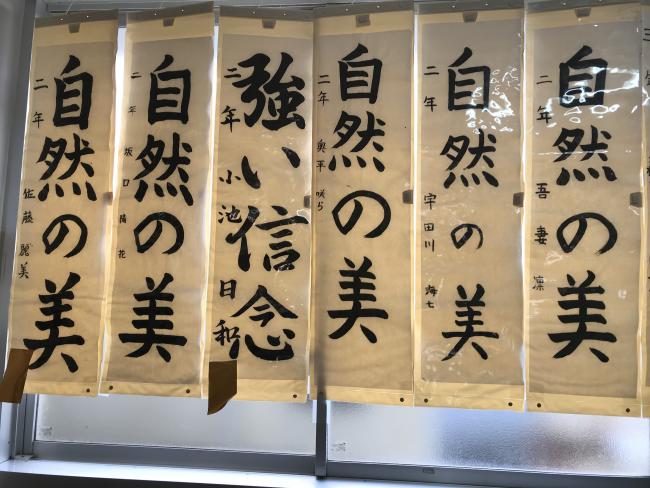 自然の美
二年 佐藤 麗美
自然の美
二年 坂口 陽花
強い信念
三年 小池 日和
自然の美
二年 奥平 咲ら
自然の美
二年 宇田川
自然の美
二年 吾妻 凛